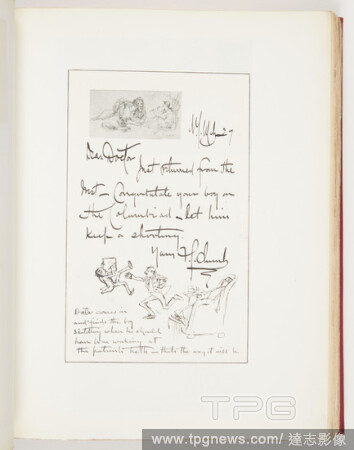 Dear Doctor
Just returned from the
West - Congratulate your boy on
the Columbiad - let him
keep a shooting
Yours
Doctor comes in
and finds the boy
sketching when he should
have been working at
the patients teeth - thats the way it will be
TPG
www.tpgnews.com/ 達志影像